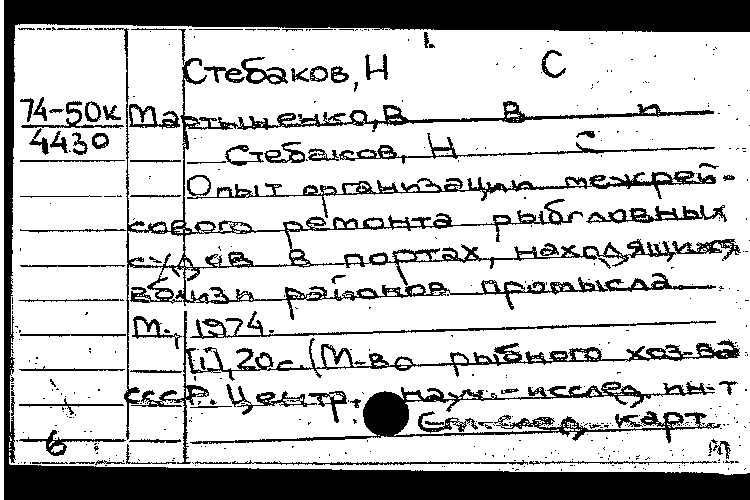 Стебаков, Н С
74-50к Мартыненко, В В п
4430 Стебаков, Н С
Опыт организации межрей-
сового ремонта рыбгловных
судов в портах, находящихся
вблизи районов промысла.
М., 1974.
[1], 20с. (М-во рыбного хоз-ва
СССР. Центр. науч.-исслед. ин-т
См.след. карт
6